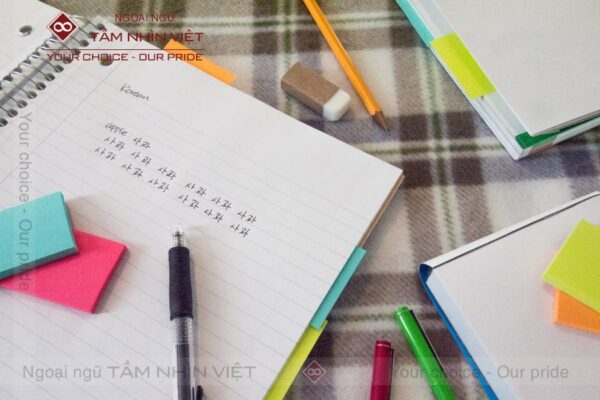 NGOẠI NGỮ
TẦM NHÌN VIỆT
YOUR CHOICE - OUR PRIDE
Korean
apple 사과
사과 사과 사과 사과 사과 사과
사과 사과 사과 사과 사과 사과
Your choice - Our pride
Ngoại ngữ TẦM NHÌN VIỆT
Your choice - Our pride